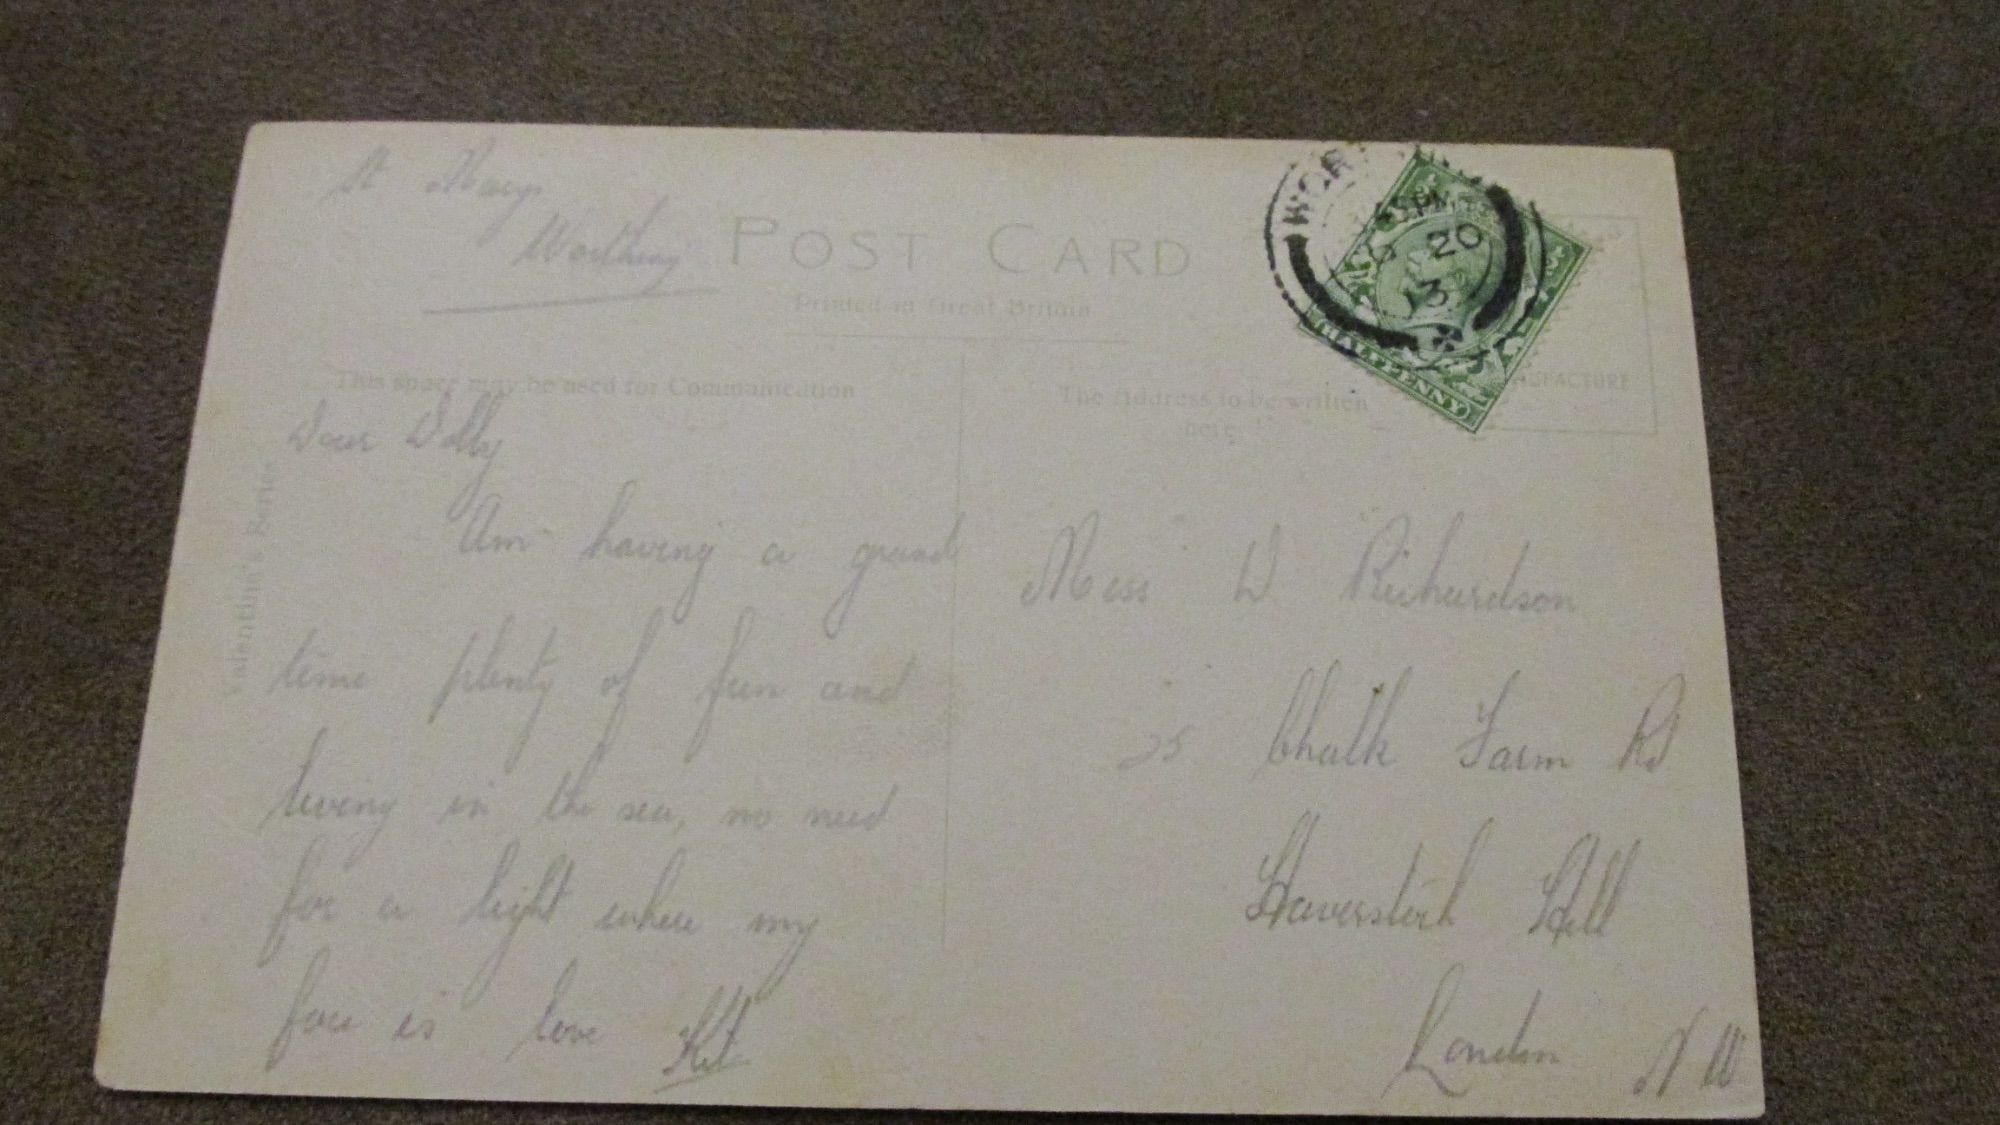 St Marys
Worthing
POST CARD
Printed in Great Britain
This space may be used for Communication
The Address to be written
here
Valentine's Series
WOR
PM
20
13
HALFPENNY
MANUFACTURE
Dear Dolly
Am having a grand
time plenty of fun and
living in the sea, no need
for a light where my
face is love Kit
Miss D Richardson
25 Chalk Farm Rd
Haverstock Hill
London N W